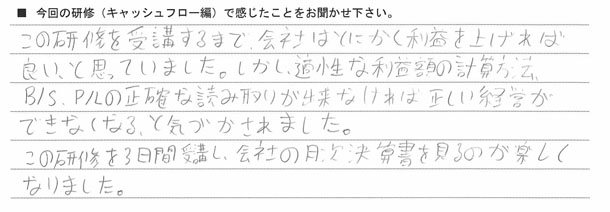 ■ 今回の研修（キャッシュフロー編）で感じたことをお聞かせ下さい。
この研修を受講するまで、会社はとにかく利益を上げれば
良い、と思っていました。しかし、適性な利益額の計算方法、
B/S、P/Lの正確な読み取りが出来なければ正しい経営が
できなくなる、と気づかされました。
この研修を3日間受講し、会社の月次決算書を見るのが楽しく
なりました。